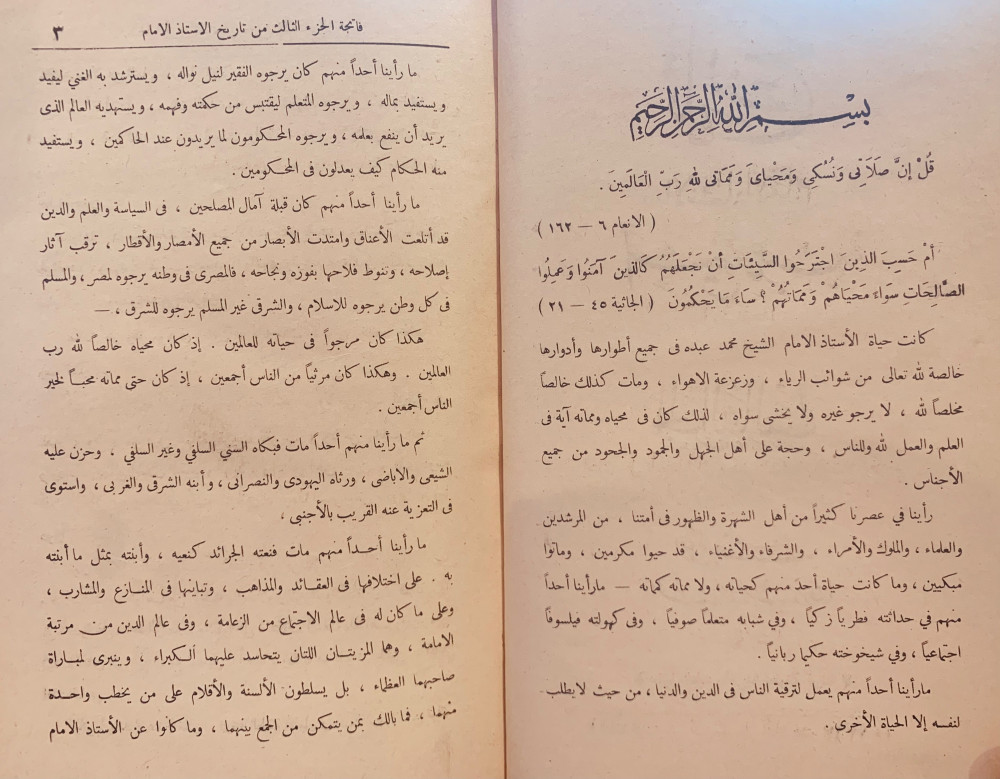 بسم الله الرحمن الرحيم
قُلْ إنَّ صَلَاتِى وَنُسُكِى وَمَحْيَاىَ وَمَمَاتِى للهِ رَبِّ الْعَالَمِينَ .
( الانعام ٦ — ١٦٢ )
أمْ حَسِبَ الذِينَ اجْتَرَحُوا السَّيِّئَاتِ أنْ نَجْعَلَهُمْ كَالذِينَ آمَنُوا وَعَمِلُوا
الصَّالِحَاتِ سَوَاء مَحْيَاهُمْ وَمَمَاتُهُمْ ؟ سَاءَ مَا يَحْكُمُونَ ( الجاثية ٤٥ — ٢١ )
كانت حياة الأستاذ الامام الشيخ محمد عبده فى جميع أطوارها وأدوارها
خالصة لله تعالى من شوائب الرياء ، وزعزعة الاهواء ، ومات كذلك خالصاً
مخلصاً لله ، لا يرجو غيره ولا يخشى سواه ، لذلك كان فى محياه ومماته آية فى
العلم والعمل لله وللناس ، وحجة على أهل الجهل والجمود والجحود من جميع
الأجناس .
رأينا في عصرنا كثيراً من أهل الشهرة والظهور فى أمتنا ، من المرشدين
والعلماء ، والملوك والأمراء ، والشرفاء والأغنياء ، قد حيوا مكرمين ، وماتوا
مبكيين ، وما كانت حياة أحد منهم كحياته ، ولا مماته كمماته — مارأينا أحداً
منهم في حداثته فطرياً زكياً ، وفي شبابه متعلماً صوفياً ، وفى كهولته فيلسوفاً
اجتماعياً ، وفي شيخوخته حكيما ربانياً .
مارأينا أحداً منهم يعمل لترقية الناس فى الدين والدنيا ، من حيث لايطلب
لنفسه إلا الحياة الأخرى .
فاتحة الجزء الثالث من تاريخ الاستاذ الامام ٣
ما رأينا أحداً منهم كان يرجوه الفقير لنيل نواله ، ويسترشد به الغني ليفيد
ويستفيد بماله ، ويرجوه المتعلم ليقتبس من حكمته وفهمه ، ويستهديه العالم الذى
يريد أن ينفع بعلمه ، ويرجوه المحكومون لما يريدون عند الحاكمين ، ويستفيد
منه الحكام كيف يعدلون فى المحكومين .
ما رأينا أحداً منهم كان قبلة آمال المصلحين ، فى السياسة والعلم والدين
قد أتلعت الأعناق وامتدت الأبصار من جميع الأمصار والأقطار ، ترقب آثار
إصلاحه ، وتنوط فلاحها بفوزه ونجاحه ، فالمصرى فى وطنه يرجوه لمصر ، والمسلم
فى كل وطن يرجوه للاسلام ، والشرقى غير المسلم يرجوه للشرق ، —
هكذا كان مرجواً فى حياته للعالمين . إذ كان محياه خالصاً لله رب
العالمين . وهكذا كان مرثياً من الناس أجمعين ، إذ كان حتى مماته محبـاً لخير
الناس أجمعين .
ثم ما رأينا منهم أحداً مات فبكاه السني السلفي وغير السلفي ، وحزن عليه
الشيعى والاباضى ، ورثاه اليهودى والنصرانى ، وأبنه الشرقى والغربى ، واستوى
فى التعزية عنه القريب بالأجنبى ،
ما رأينا أحـداً منهم مات فنعته الجرائد كنعيه ، وأبنته بمثل ما أبنته
به . على اختلافها فى العقـائد والمذاهب ، وتباينها فى المنـازع والمشارب ،
وعلى ما كان له فى عالم الاجتماع من الزعامة ، وفى عالم الدين من مرتبة
الامامة ، وهما المزيتـان اللتان يتحاسد عليهما الكبراء ، وينبرى لمباراة
صاحبهما العظماء ، بل يسلطون الألسنة والأقلام على من يخطب واحـدة
منهما ، فما بالك بمن يتمكن من الجمع بينهما ، وما كانوا عن الأستاذ الامام